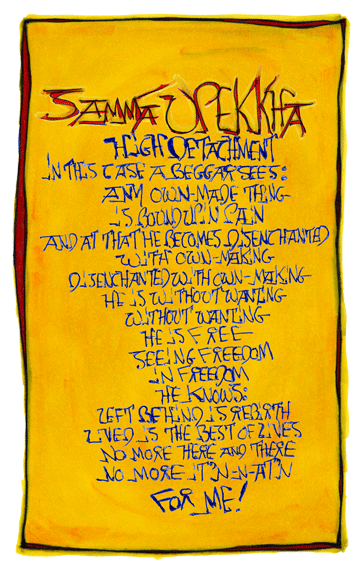 SAMMĀ UPEKKHĀ
HIGH DETACHMENT
IN THIS CASE A BEGGAR SEES:
ANY OWN-MADE THING
IS BOUND UP IN PAIN
AND AT THAT HE BECOMES DISENCHANTED
WITH OWN-MAKING
DISENCHANTED WITH OWN-MAKING
HE IS WITHOUT WANTING
WITHOUT WANTING
HE IS FREE
SEEING FREEDOM
IN FREEDOM
HE KNOWS:
LEFT BEHIND IS REBIRTH
LIVED IS THE BEST OF LIVES
NO MORE HERE AND THERE
NO MORE IT'N-N-AT'N
FOR ME!